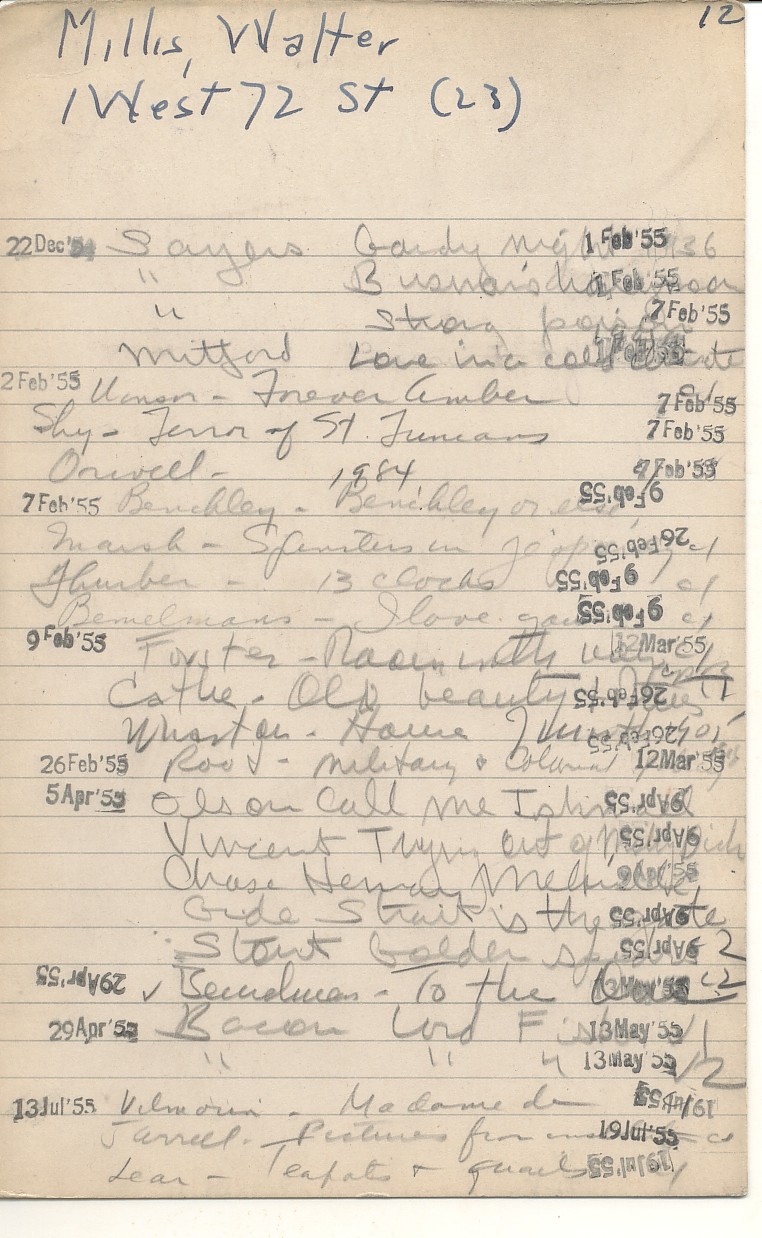 12
Millis, Walter
1 West 72 St (23)
22 Dec '54 Sayers Gaudy night 1 Feb '55 36
" Busman's 1 Feb '55
" Strong poison 7 Feb '55
Mitford Love in a cold
2 Feb '55 Winsor - Forever Amber 7 Feb '55
Shy - Terror of St. Trinians 7 Feb '55
Orwell - 1984 Feb '55
7 Feb '55 Benchley - Benchley or else 9 Feb '55
Marsh - Spinsters in 26 Feb '55 c1
Thurber - 13 clocks 9 Feb '55 c1
Bemelmans - I love 9 Feb '55 c1
9 Feb '55 Forster - Room with 12 Mar '55
Cather - Old beauty 26 Feb '55
Wharton - House 26 Feb '55
26 Feb '55 Root - military & Colonial 12 Mar '55
5 Apr '55 Olson Call me Ishmael 9 Apr '55
Vincent Trying out of Moby Dick 9 Apr '55
Chase Herman Melville
Gide Strait is the gate 9 Apr '55
Stout Golden 9 Apr '55 2
29 Apr '55 ✓ Bemelmans - To the c2
29 Apr '55 Bacon Lord 13 May '55 1
" " " 13 May '55 2
13 Jul '55 Vilmorin - Madame de 19 Jul '55
Jarrell - Pictures from 19 Jul '55 c1
Lear - Teapots & quails 19 Jul '55